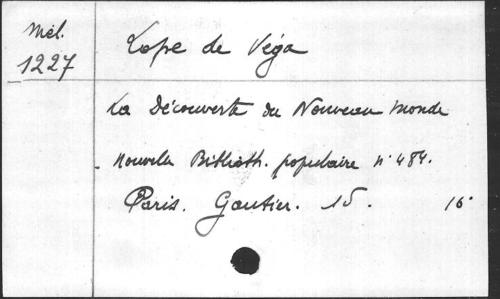 Mél.
1227
Lope de Véga
La Découverte du Nouveau Monde
Nouvelle Biblioth. populaire n° 484.
Paris. Gautier. 15. 16°